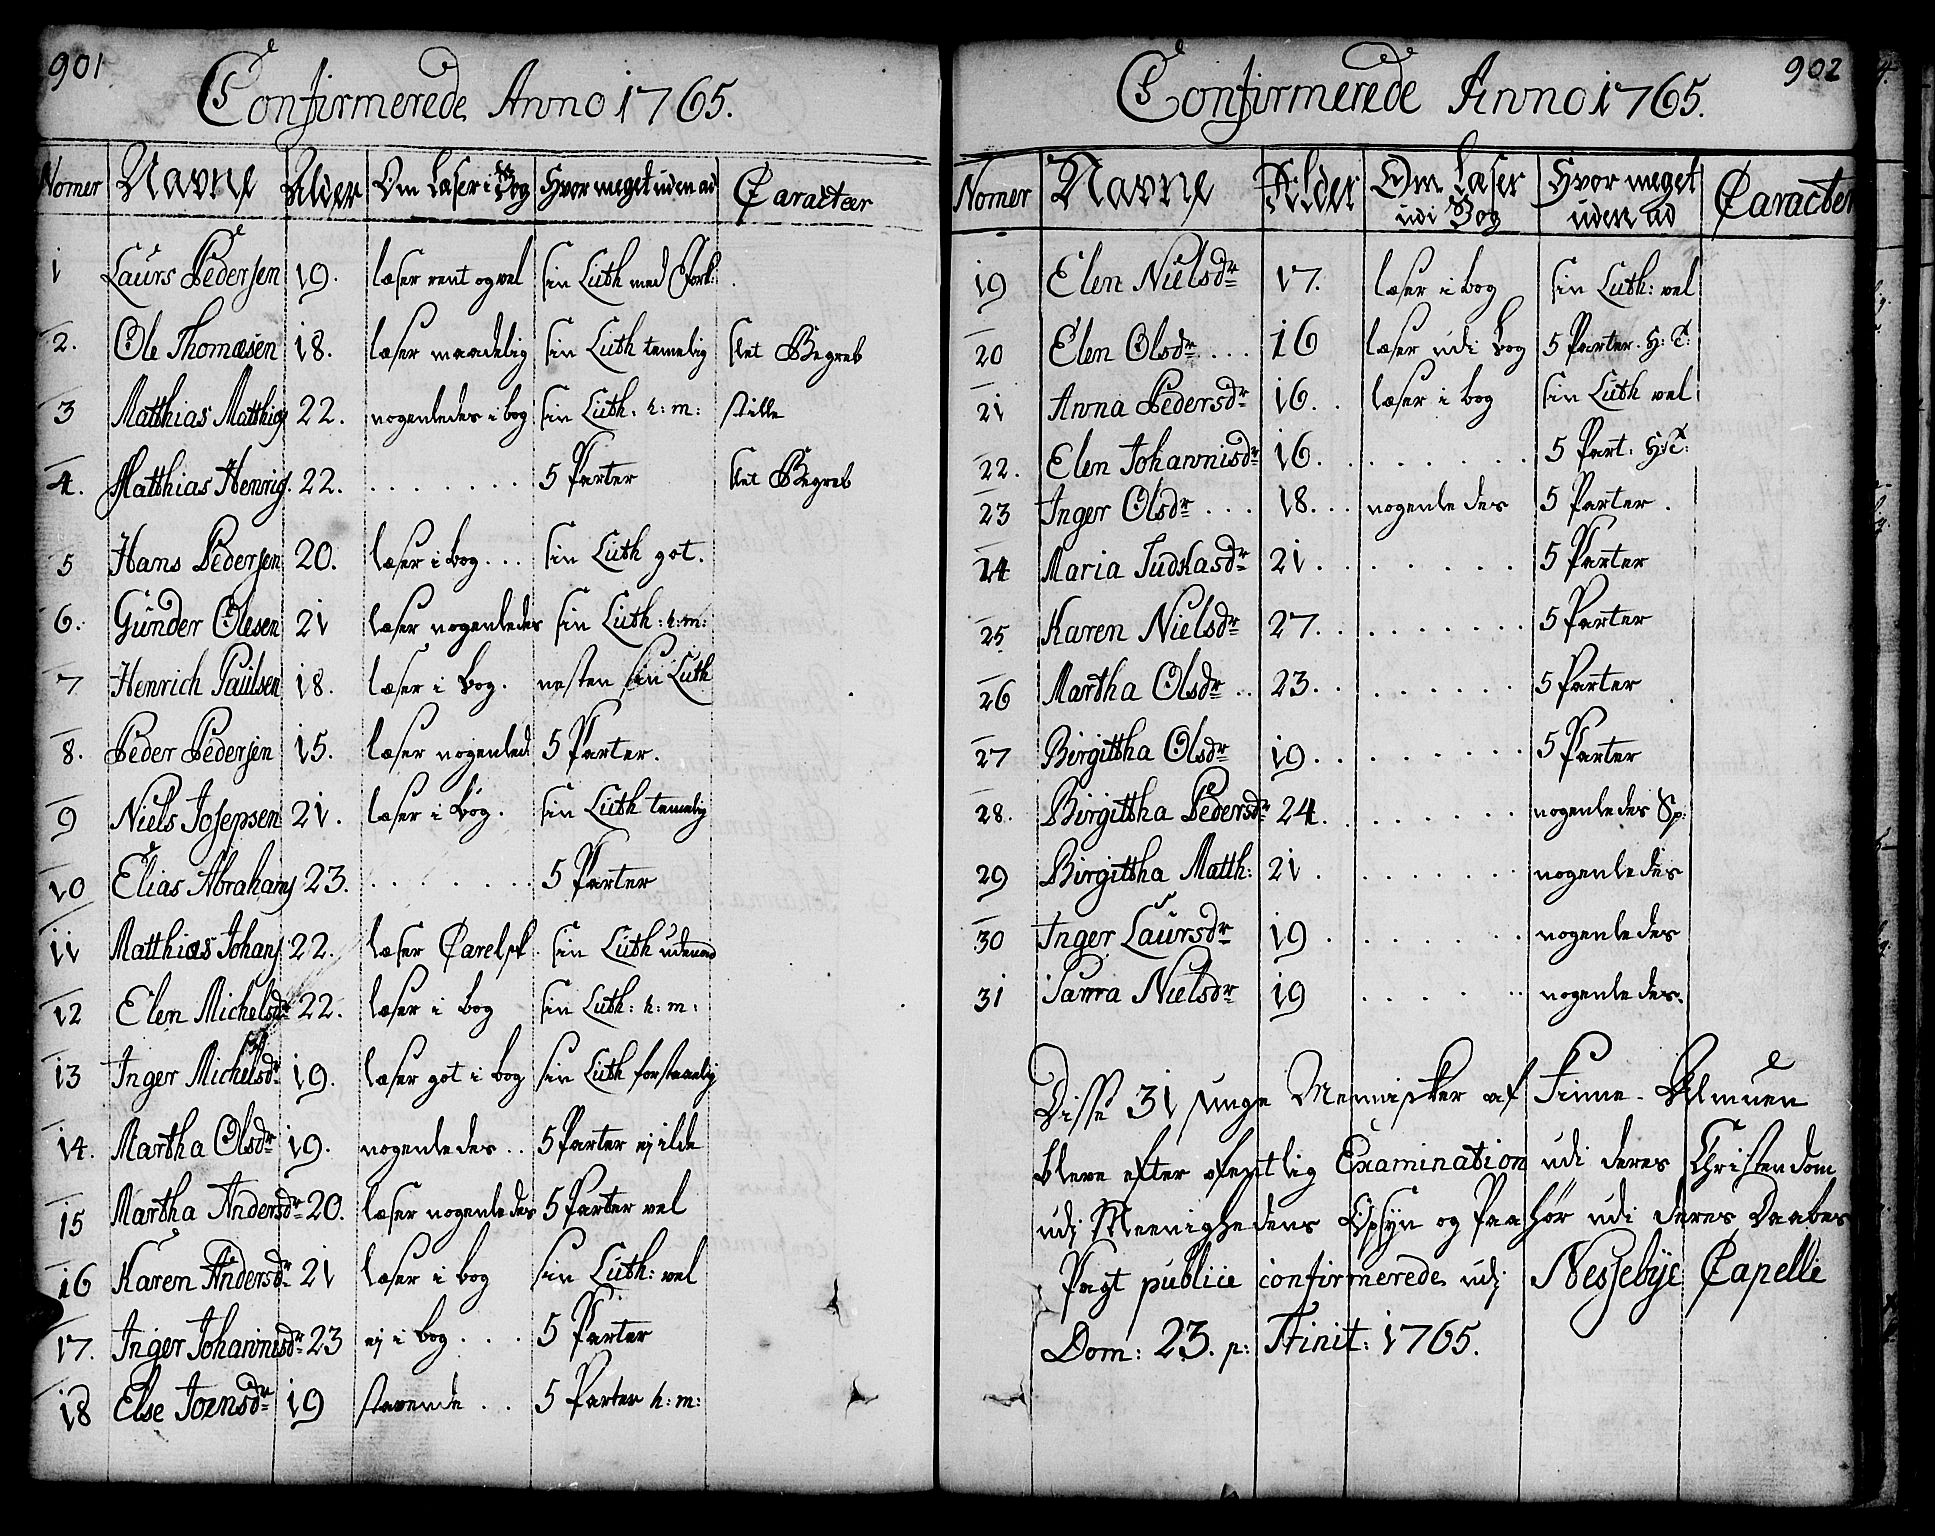 901
Confirmerede Anno 1765.
Nomer Navne Alder Om Læser i Bog Hvor meget uden ad Caracteer
1 Laurs Pedersen 19. læser rent og vel sin Luth med Fork:
2. Ole Thomæsen 18. læser maadelig sin Luth temelig slet Begreb
3 Matthias Matthiæs 22. nogenledes i bog sin Luth: h: m: stille
4. Matthias Henrigs. 22. . . . . . . . 5 Parter slet Begreb
5 Hans Pedersen 20. læser i bog . . . sin Luth got.
6. Gunder Olesen 21 læser nogenledes sin Luth: h: m:
7 Henrich Paulsen 18. læser i bog. nesten sin Luth
8. Peder Pedersen 15. læser nogenled 5 Parter.
9 Niels Josepsen 21. læser i bog. sin Luth temelig
10 Elias Abrahams 23. . . . . . . . 5 Parter
11 Matthias Johans 22. læser Carelsk. sin Luth udenad
12 Elen Michelsdr 22. læser i bog sin Luth: h: m:
13 Inger Michelsdr 19. læser got i bog sin Luth forstaaelig
14. Martha Olsdr 19. nogenledes . . 5 Parter ej ilde
15 Martha Andersdr 20. læser nogenledes 5 Parter vel
16 Karen Andersdr 21 læser i bog sin Luth: vel
17. Inger Johannisdr 23 ej i bog . . . 5 Parter
18 Else Joensdr 19 stavende . . 5 Parter h: m:
902
Confirmerede Anno 1765.
Nomer Navne Alder Om Læser udi Bog Hvor meget uden ad Caracter
19 Elen Nielsdr 17. læser i bog sin Luth: vel
20 Elen Olsdr . . . . 16 læser udi bog 5 Parter. H: T:
21 Anna Pedersdr 16. . læser i bog sin Luth vel
22. Elen Johannisdr 16. . . . . . . . 5 Part: H: T:
23 Inger Olsdr . . . 18. . . nogenledes 5 Parter.
24 Maria Judithasdr 21. . . . . . . 5 Parter
25 Karen Nielsdr 27. . . . . . . . 5 Parter
26 Martha Olsdr . . 23. . . . . . . . 5 Parter
27 Birgittha Olsdr 19. . . . . . . 5 Parter
28. Birgittha Pedersdr 24. . . . . . . nogenledes Sp:
29 Birgittha Matth: 21. . . . . . . nogenledes
30 Inger Laursdr 19. . . . . . . nogenledes
31 Sarra Nielsdr 19 . . . . . . nogenledes.
Disse 31 unge Mennisker af Finne-Almuen
bleve efter ofentlig Examination udi deres Christendom
udj Meenighedens Opsyn og Paahør udi deres Daabes
Pagt publicé confirmerede udj Nessebÿe Capelle
Dom: 23. p: Trinit: 1765.